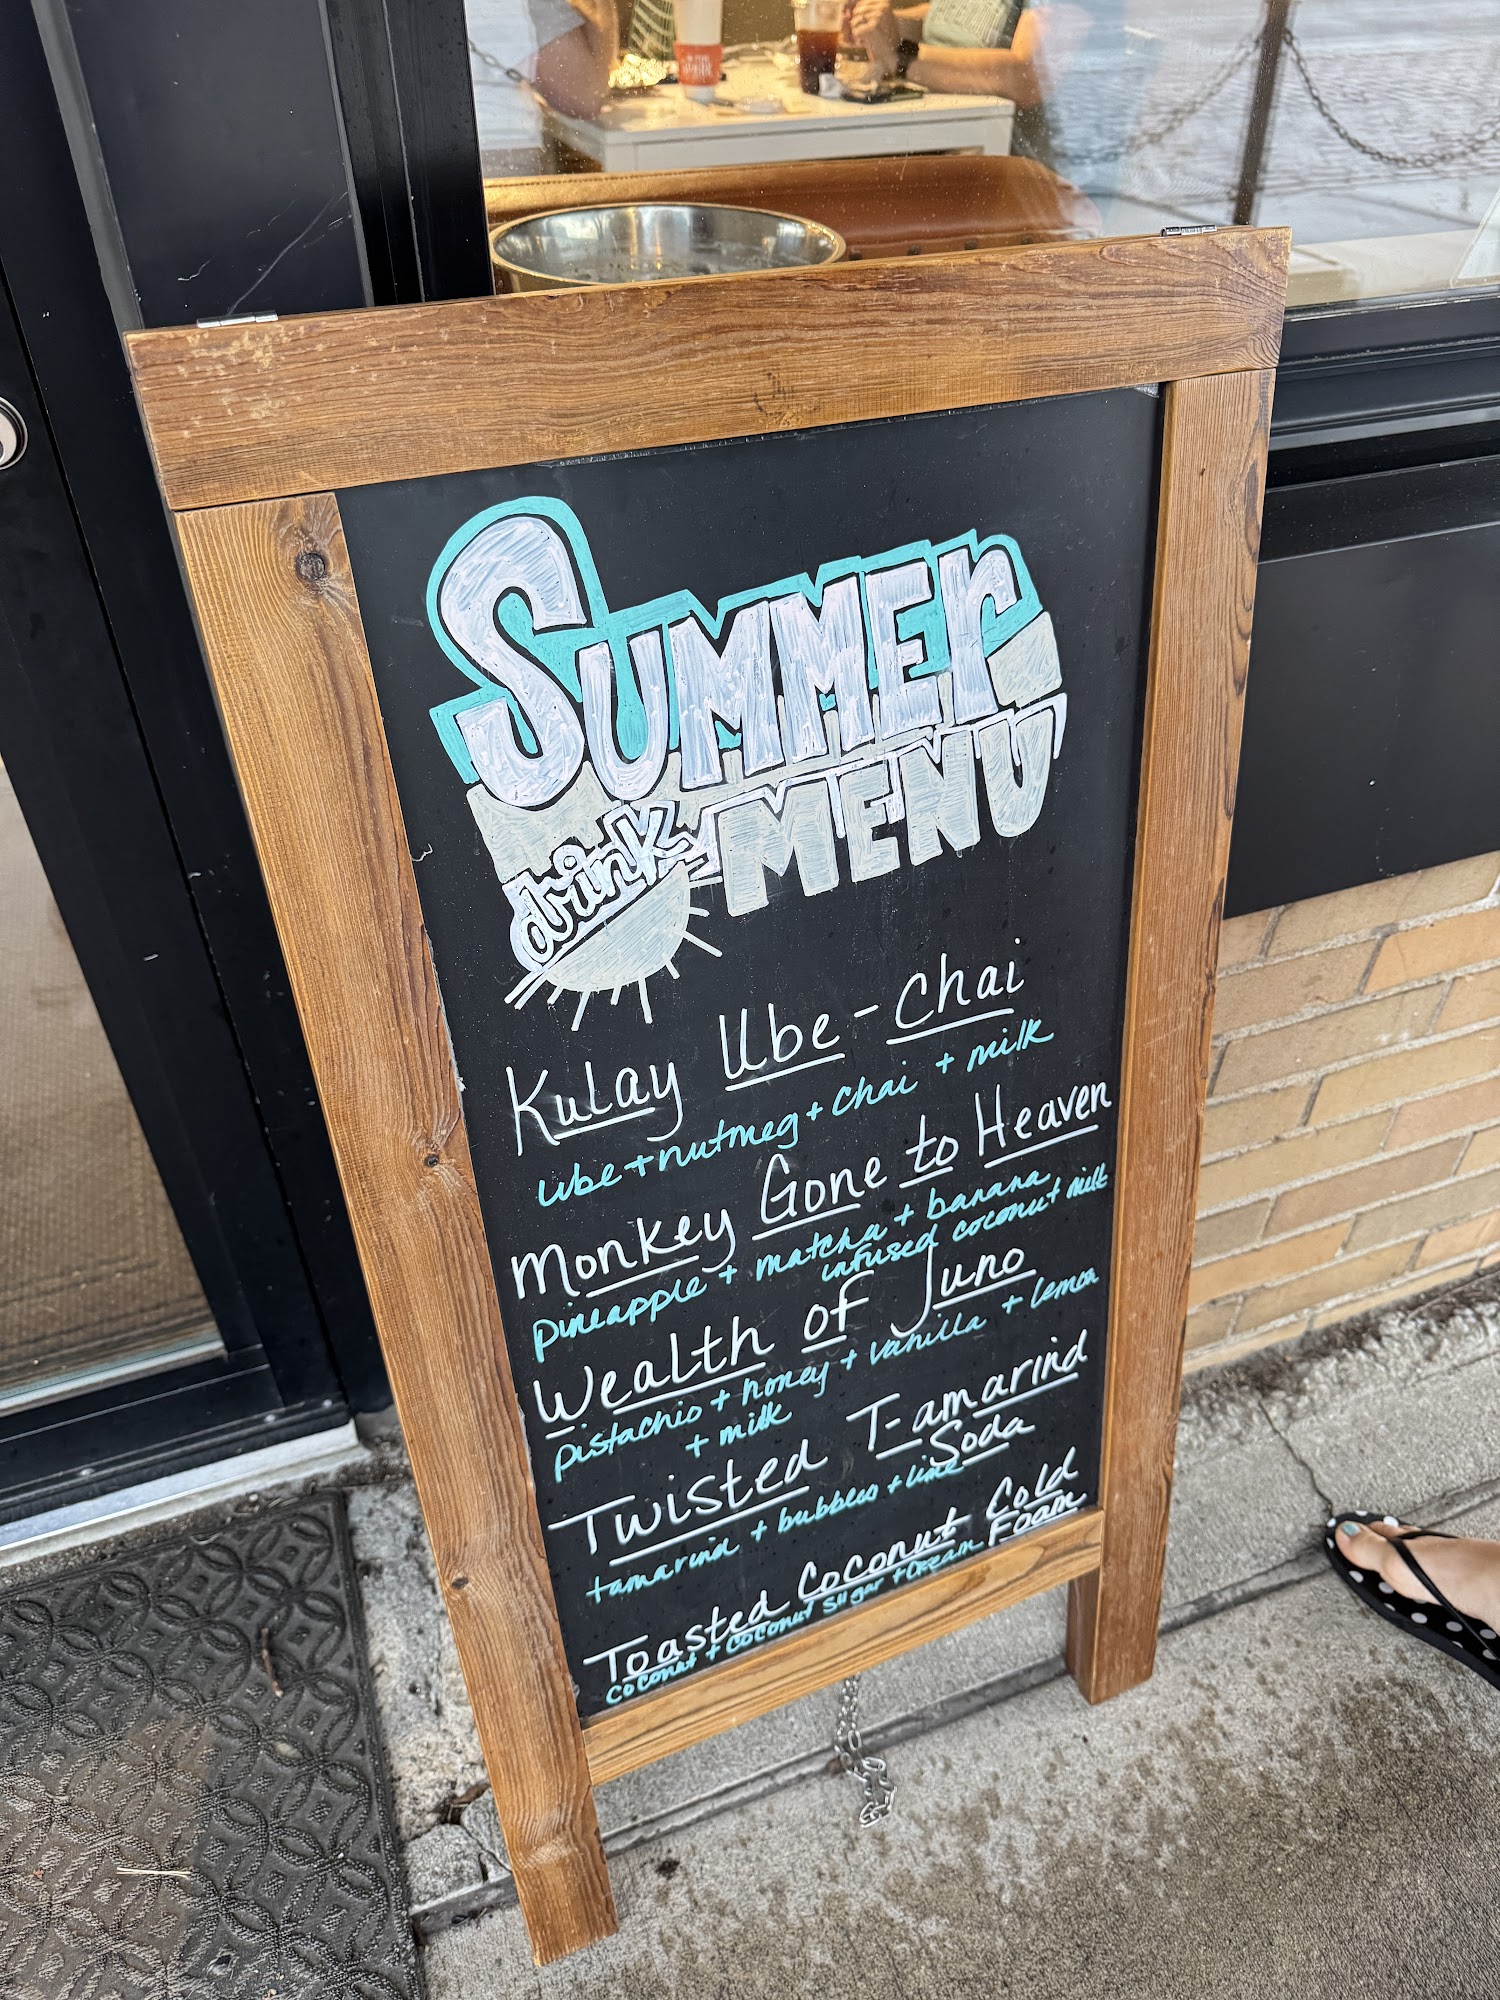 Summer
drink MENU
Kulay Ube-Chai
ube + nutmeg + chai + milk
Monkey Gone to Heaven
pineapple + matcha + banana
infused coconut milk
Wealth of Juno
pistachio + honey + vanilla + lemon
+ milk
Twisted T-amarind
Soda
tamarind + bubbles + lime
Toasted Coconut Cold
Foam
coconut + coconut sugar + cream